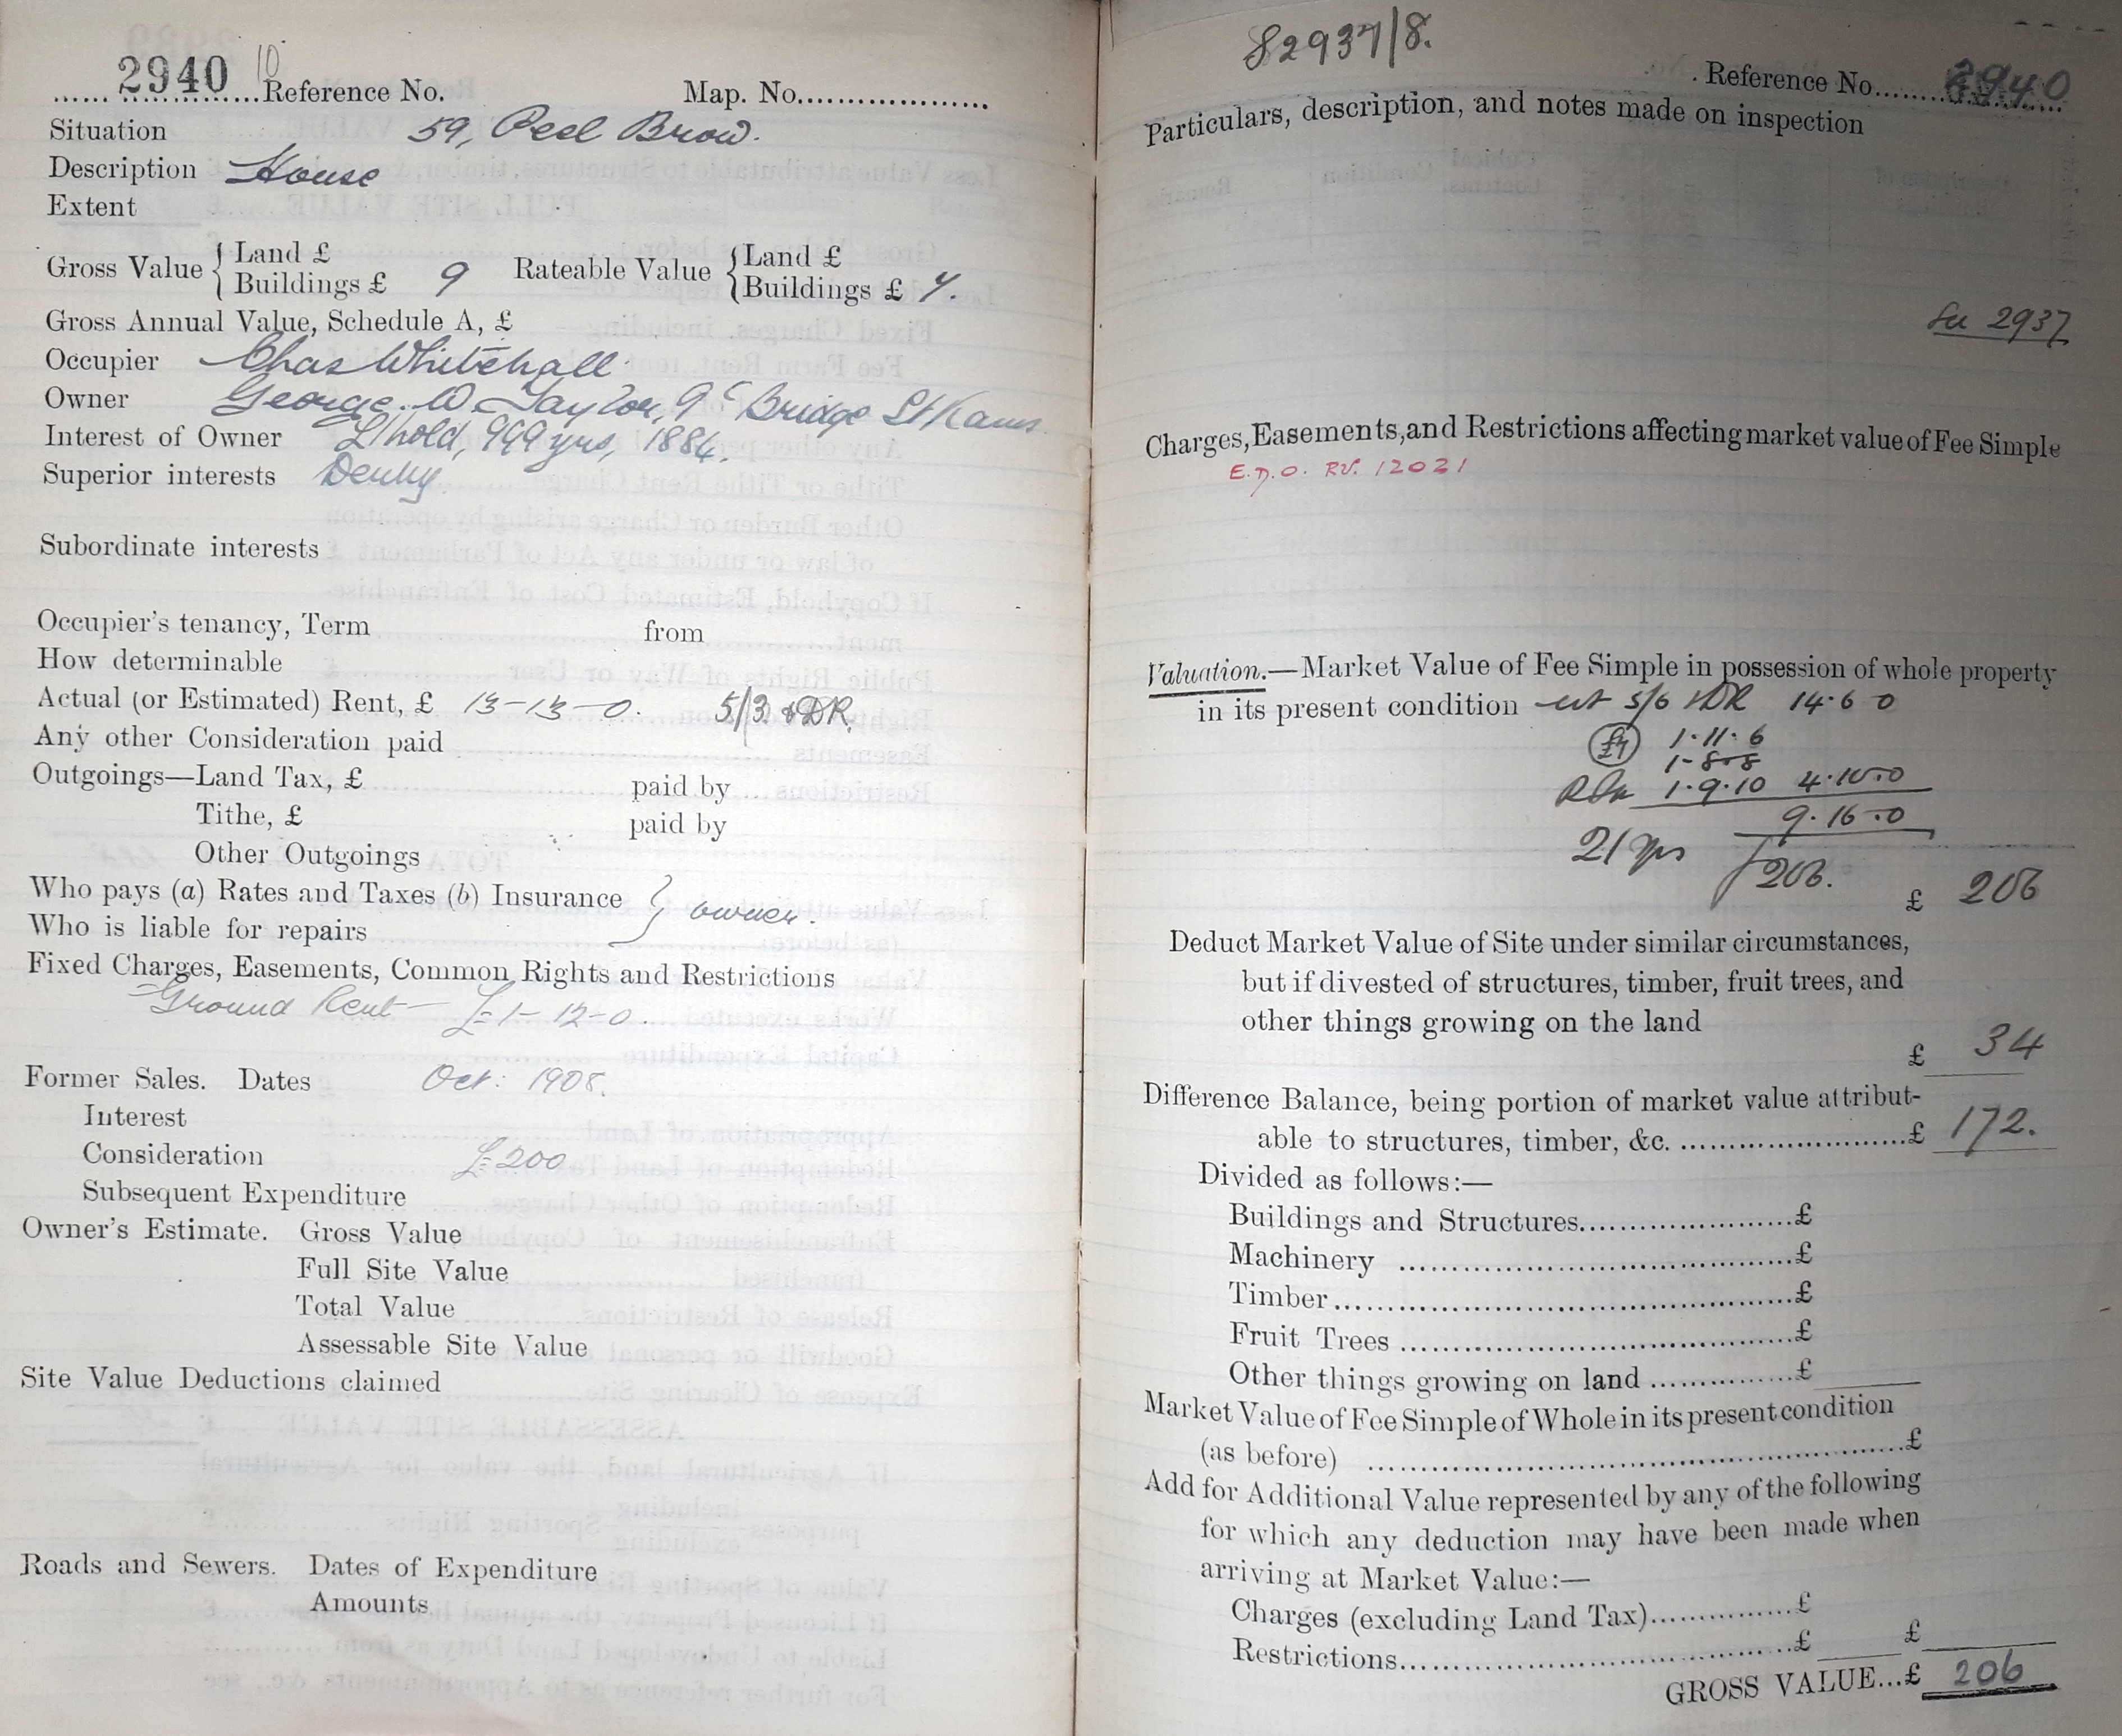 2940 10 Reference No. Map. No.
Situation 59, Peel Brow.
Description House
Extent
Gross Value { Land £
Buildings £ 9 Rateable Value { Land £
Buildings £ 7.
Gross Annual Value, Schedule A, £
Occupier Chas Whitehall
Owner George W Taylor, 9c Bridge St Rams
Interest of Owner L/hold, 999 yrs, 1884.
Superior interests
Subordinate interests
Occupier's tenancy, Term from
How determinable
Actual (or Estimated) Rent, £ 13-13-0. 5/3 & DR.
Any other Consideration paid
Outgoings—Land Tax, £ paid by
Tithe, £ paid by
Other Outgoings
Who pays (a) Rates and Taxes (b) Insurance }
Who is liable for repairs } owner.
Fixed Charges, Easements, Common Rights and Restrictions
Ground Rent — £1-12-0.
Former Sales. Dates Oct: 1908.
Interest
Consideration £200
Subsequent Expenditure
Owner's Estimate. Gross Value
Full Site Value
Total Value
Assessable Site Value
Site Value Deductions claimed
Roads and Sewers. Dates of Expenditure
Amounts
82937/8.
Reference No. 2940
Particulars, description, and notes made on inspection
See 2937
Charges, Easements, and Restrictions affecting market value of Fee Simple
E.D.O. RV. 12021
Valuation.—Market Value of Fee Simple in possession of whole property
in its present condition est 5/6 & DR 14.6 0
£7 1.11.6
1-8-8
1.9.10 4.10.0
9.16.0
21 yrs 206.
£ 206
Deduct Market Value of Site under similar circumstances,
but if divested of structures, timber, fruit trees, and
other things growing on the land
£ 34
Difference Balance, being portion of market value attribut-
able to structures, timber, &c. £ 172.
Divided as follows:—
Buildings and Structures £
Machinery £
Timber £
Fruit Trees £
Other things growing on land £
Market Value of Fee Simple of Whole in its present condition
(as before) £
Add for Additional Value represented by any of the following
for which any deduction may have been made when
arriving at Market Value:—
Charges (excluding Land Tax) £
Restrictions £ £
GROSS VALUE...£ 206